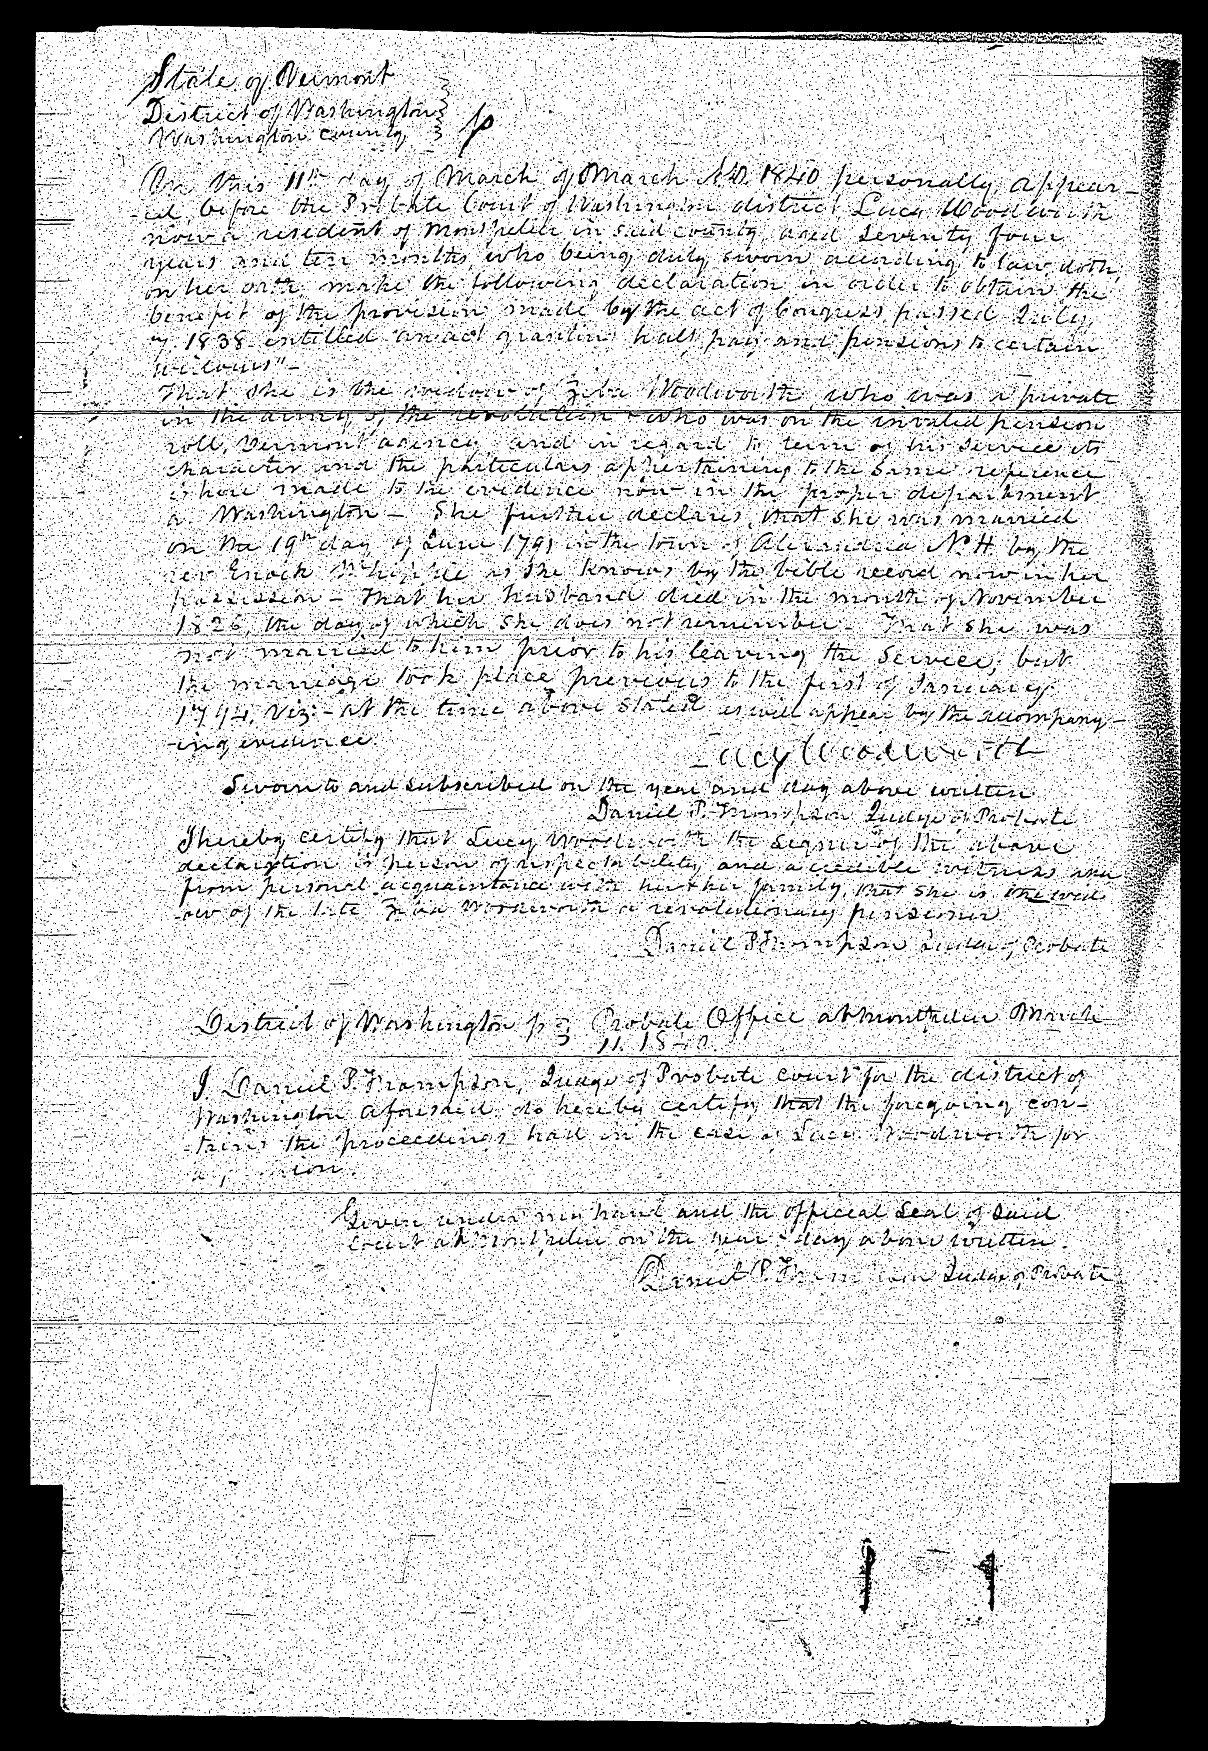 State of Vermont
District of Washington
Washington County } ss
On this 11th day of March of March A.D. 1840 personally appear-
-ed before the Probate Court of Washington district Lucy Woodworth
now a resident of Montpelier in said county aged seventy four
years and ten months, who being duly sworn according to law doth
on her oath make the following declaration in order to obtain the
benefit of the provision made by the act of Congress passed July
7. 1838 entitled "an act granting half pay and pensions to certain
widows" -
That she is the widow of Ziba Woodworth who was a private
in the army of the revolution & who was on the invalid pension
roll, Vermont agency, and in regard to term of his service its
character and the particulars appertaining to the same reference
is here made to the evidence now in the proper department
a Washington - She further declares, that she was married
on the 19th day of June 1791 in the town of Alexandria N.H. by the
rev Enoch Whipple as she knows by the bible record now in her
possession - That her husband died in the month of November
1826, the day of which she does not remember - That she was
not married to him prior to his leaving the service; but
the marriage took place previous to the first of January
1794, viz: - at the time above stated as will appear by the accompany-
-ing evidence.
Lucy Woodworth
Sworn to and subscribed on the year and day above written
Daniel P. Thompson Judge of Probate
I hereby certify that Lucy Woodworth the signer of the above
declaration is person of respectability and a credible witness and
from personal acquaintance with her & her family, that she is the wid-
-ow of the late Ziba Woodworth a revolutionary pensioner
Daniel P Thompson Judge of Probate
District of Washington ss } Probate Office at Montpelier March
11. 1840.
I Daniel P. Thompson, Judge of Probate court for the district of
Washington aforesaid, do hereby certify that the foregoing con-
-tains the proceedings had in the case of Lucy Woodworth for
a pension.
Given under my hand and the official seal of said
court at Montpelier on the year & day above written.
Daniel P. Thompson Judge of Probate